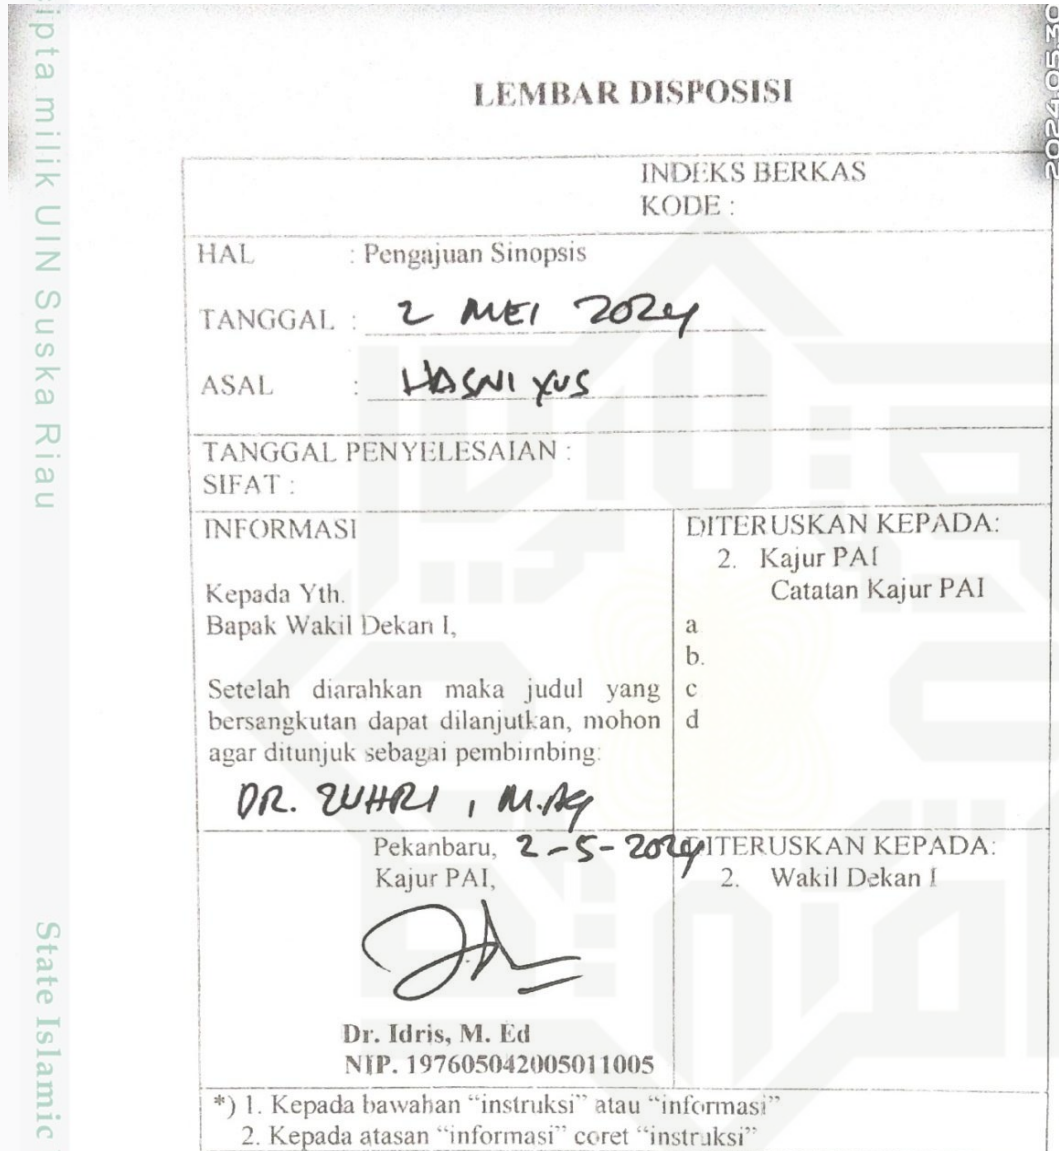 cipta milik UIN Suska Riau
State Islamic
2024.05.30
LEMBAR DISPOSISI
INDEKS BERKAS
KODE :
HAL : Pengajuan Sinopsis
TANGGAL : 2 MEI 2024
ASAL : HASNI YUS
TANGGAL PENYELESAIAN :
SIFAT :
INFORMASI
Kepada Yth.
Bapak Wakil Dekan I,
Setelah diarahkan maka judul yang
bersangkutan dapat dilanjutkan, mohon
agar ditunjuk sebagai pembimbing:
DR. ZUHRI, M.Ag
DITERUSKAN KEPADA:
2. Kajur PAI
Catatan Kajur PAI
a
b.
c
d
Pekanbaru, 2-5-2024
Kajur PAI,
Dr. Idris, M. Ed
NIP. 197605042005011005
DITERUSKAN KEPADA:
2. Wakil Dekan I
*) 1. Kepada bawahan “instruksi” atau “informasi”
2. Kepada atasan “informasi” coret “instruksi”